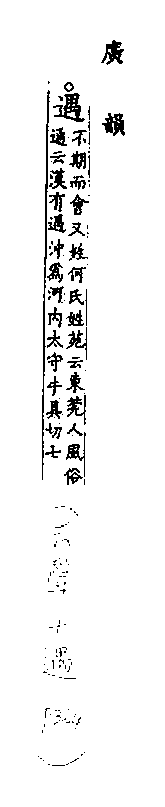 廣韻
○遇不期而會又姓何氏姓苑云東莞人風俗
通云漢有遇沖爲河內太守牛具切七
十遇